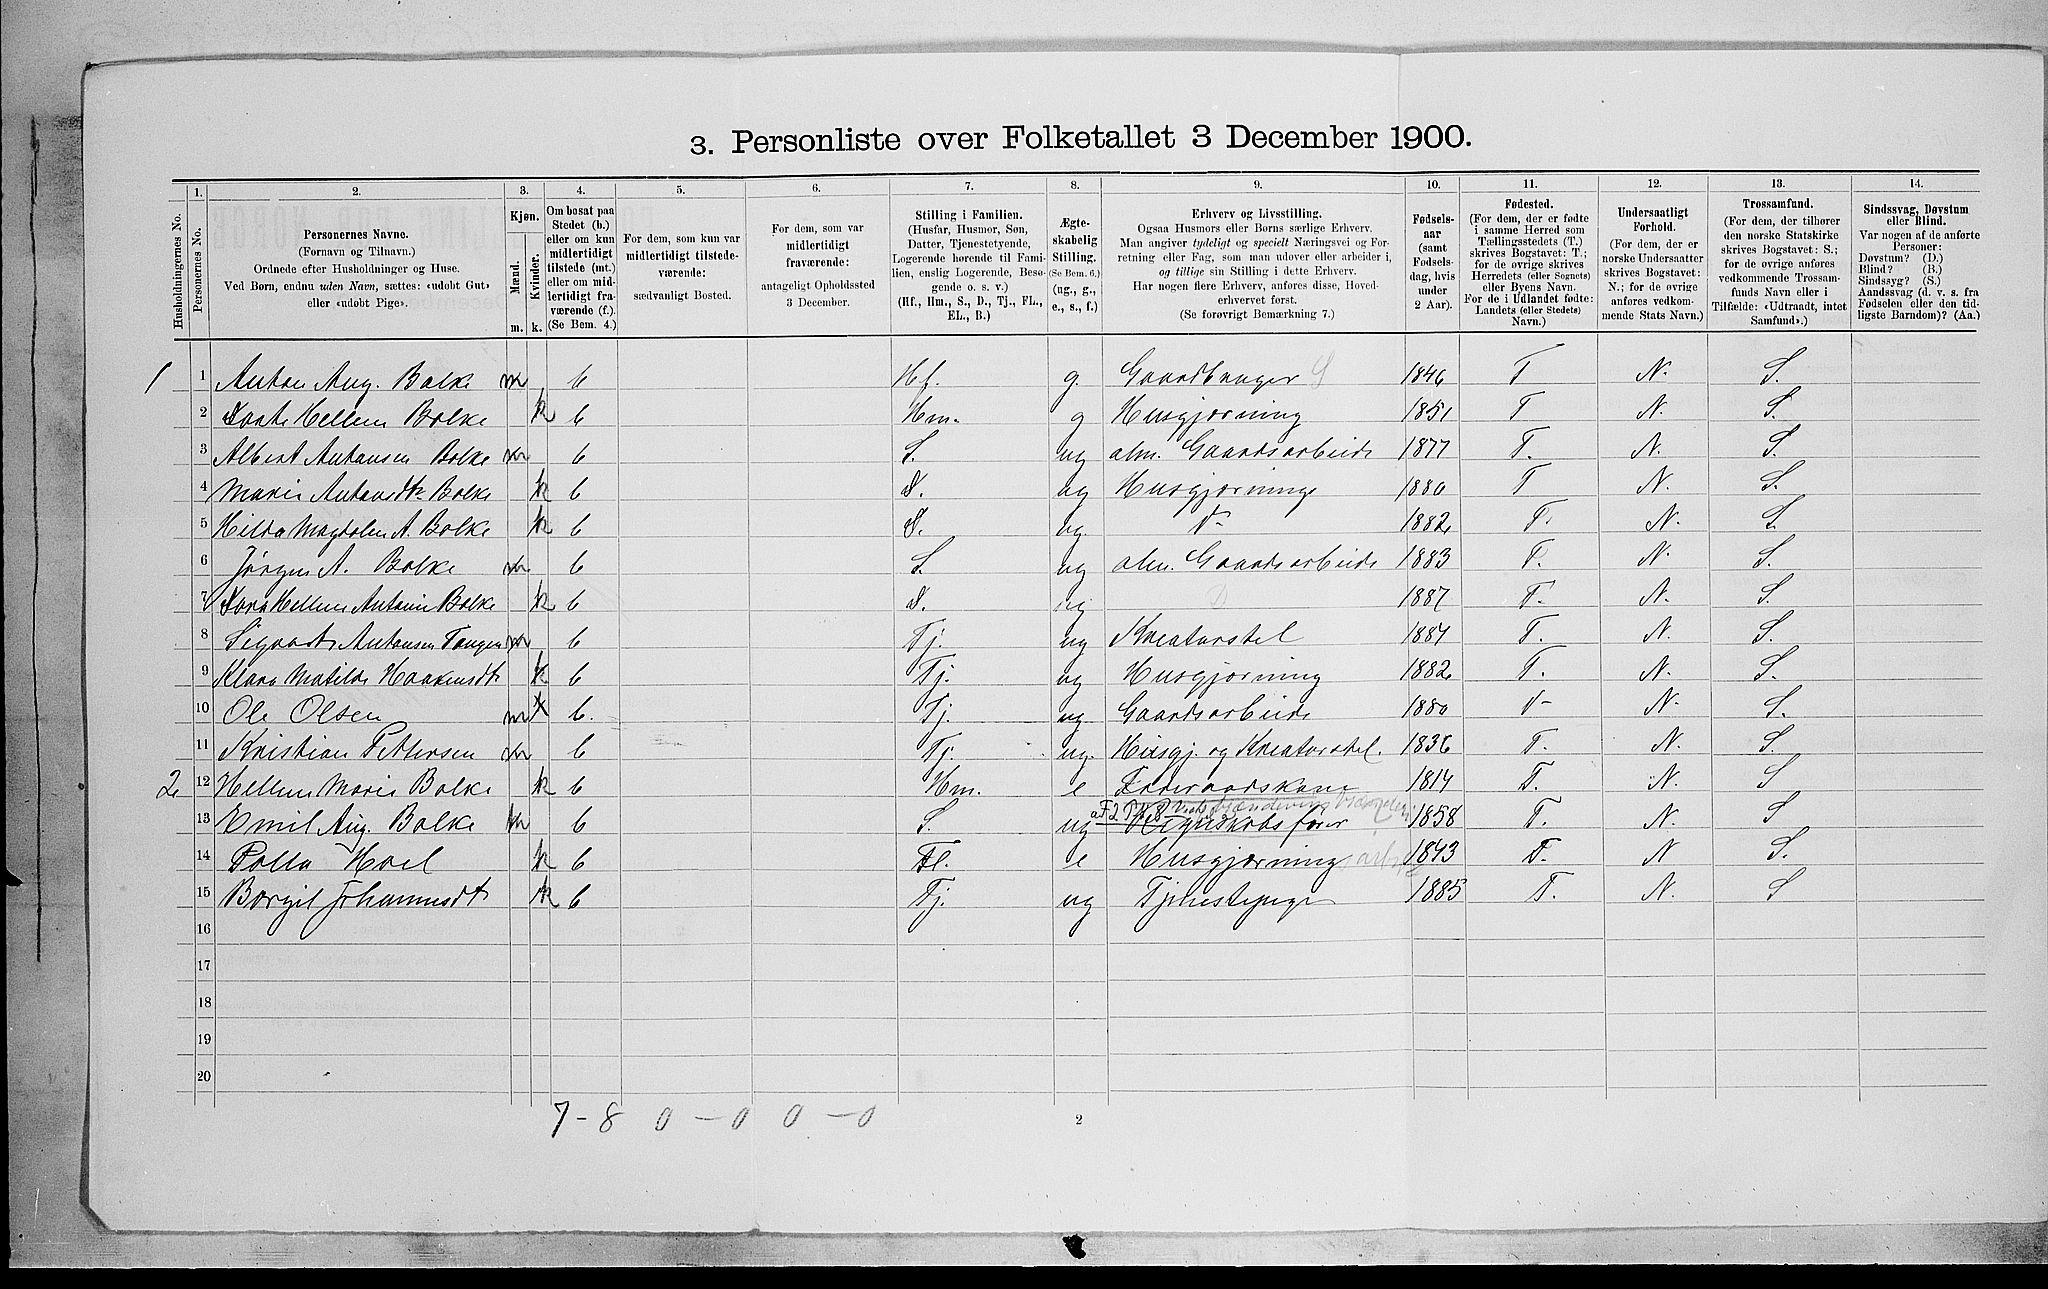 3. Personliste over Folketallet 3 December 1900.
Husholdningernes No.
1. Personernes No.
2. Personernes Navne.
(Fornavn og Tilnavn.)
Ordnede efter Husholdninger og Huse.
Ved Børn, endnu uden Navn, sættes: «udøbt Gut»
eller «udøbt Pige».
3. Kjøn.
Mænd. m.
Kvinder. k.
4. Om bosat paa
Stedet (b.)
eller om kun
midlertidigt
tilstede (mt.)
eller om mid-
lertidigt fra-
værende (f.)
(Se Bem. 4.)
5. For dem, som kun var
midlertidigt tilstede-
værende:
sædvanligt Bosted.
6. For dem, som var
midlertidigt
fraværende:
antageligt Opholdssted
3 December.
7. Stilling i Familien.
(Husfar, Husmor, Søn,
Datter, Tjenestetyende,
Logerende hørende til Fami-
lien, enslig Logerende, Besø-
gende o. s. v.)
(Hf., Hm., S., D., Tj., FL.,
EL., B.)
8. Ægte-
skabelig
Stilling.
(Se Bem. 6.)
(ug., g.,
e., s., f.)
9. Erhverv og Livsstilling.
Ogsaa Husmors eller Børns særlige Erhverv.
Man angiver tydeligt og specielt Næringsvei og For-
retning eller Fag, som man udøver eller arbeider i,
og tillige sin Stilling i dette Erhverv.
Har nogen flere Erhverv, anføres disse, Hoved-
erhvervet først.
(Se forøvrigt Bemærkning 7.)
10. Fødsels-
aar
(samt
Fødsels-
dag, hvis
under
2 Aar).
11. Fødested.
(For dem, der er fødte
i samme Herred som
Tællingsstedets (T.)
skrives Bogstavet: T.;
for de øvrige skrives
Herredets (eller Sognets)
eller Byens Navn.
For de i Udlandet fødte:
Landets (eller Stedets)
Navn.)
12. Undersaatligt
Forhold.
(For dem, der er
norske Undersaatter
skrives Bogstavet:
N.; for de øvrige
anføres vedkom-
mende Stats Navn.)
13. Trossamfund.
(For dem, der tilhører
den norske Statskirke
skrives Bogstavet: S.;
for de øvrige anføres
vedkommende Trossam-
funds Navn eller i
Tilfælde: «Udtraadt, intet
Samfund».)
14. Sindssvag, Døvstum
eller Blind.
Var nogen af de anførte
Personer:
Døvstum? (D.)
Blind? (B.)
Sindssyg? (S.)
Aandssvag (d. v. s. fra
Fødselen eller den tid-
ligste Barndom)? (Aa.)
1 1 Anton Aug. Bolke m b Hf. g. Gaardbruger S 1846 T N. S.
2 Hellene Bolke k b Hm. g Husgjørning 1851 T N. S.
3 Albert Antonsen Bolke m b S. ug alm. Gaardsarbeide 1877 T. N. S.
4 Marie Antonsdtr Bolke k b D. ug Husgjørning 1880 T N. S.
5 Hilda Magdalen A. Bolke k b D. ug. 1882 T. N. S.
6 Jørgen A. Bolke m b S. ug alm. Gaardsarbeide 1883 T. N. S.
7 Hellene Antonie Bolke k b D. ug D 1887 T. N. S.
8 Sigvart Antonsen Tangen m b Tj. ug Kreaturstel 1884 T. N. S.
9 Klara Matilde Haakensdtr k b Tj. ug Husgjørning 1882 T. N. S.
10 Ole Olsen m b. Tj. ug. Gaardsarbeide 1880 T N. S.
11 Kristian Pettersen m b Tj. ug. Husgj. og Kreaturstel. 1836 T. N. S.
2 12 Hellene Marie Bolke k b Hm. e Føderaadskone 1814 T. N. S
13 Emil Aug. Bolke m b S. ug Regnskabsfører 1858 T. N. S
14 Hoel k b Fl. e Husgjørning 1843 T. N S.
15 Borgil Johannesdtr k b Tj. ug Tjenestepige 1885 T. N. S
16
17
18
19
20
7 - 8 0 - 0 0 - 0
2